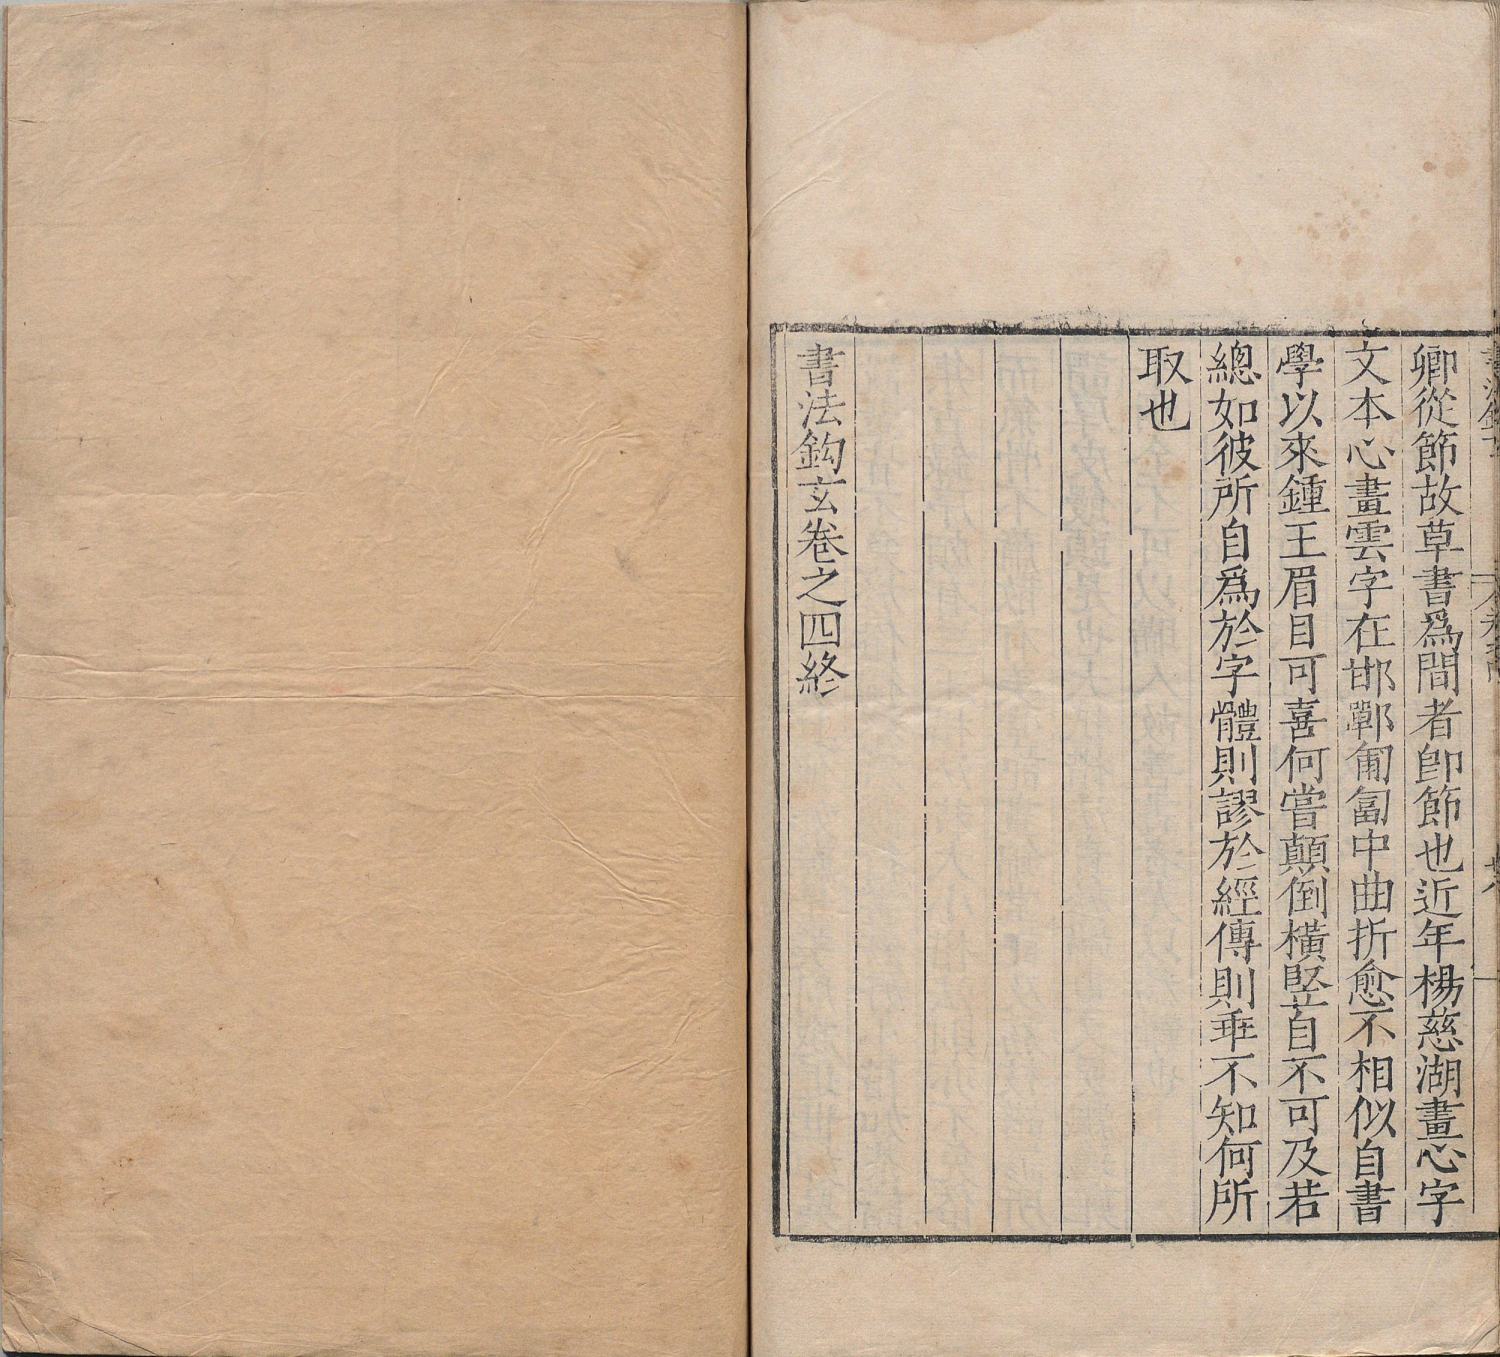 卿從節故草書爲間者卽節也近年楊慈湖畫心字
文本心畫雲字在邯鄲匍匐中曲折愈不相似自書
學以來鍾王眉目可喜何嘗顛倒橫竪自不可及若
總如彼所自爲於字體則謬於經傳則乖不知何所
取也
書法鈎玄卷之四終